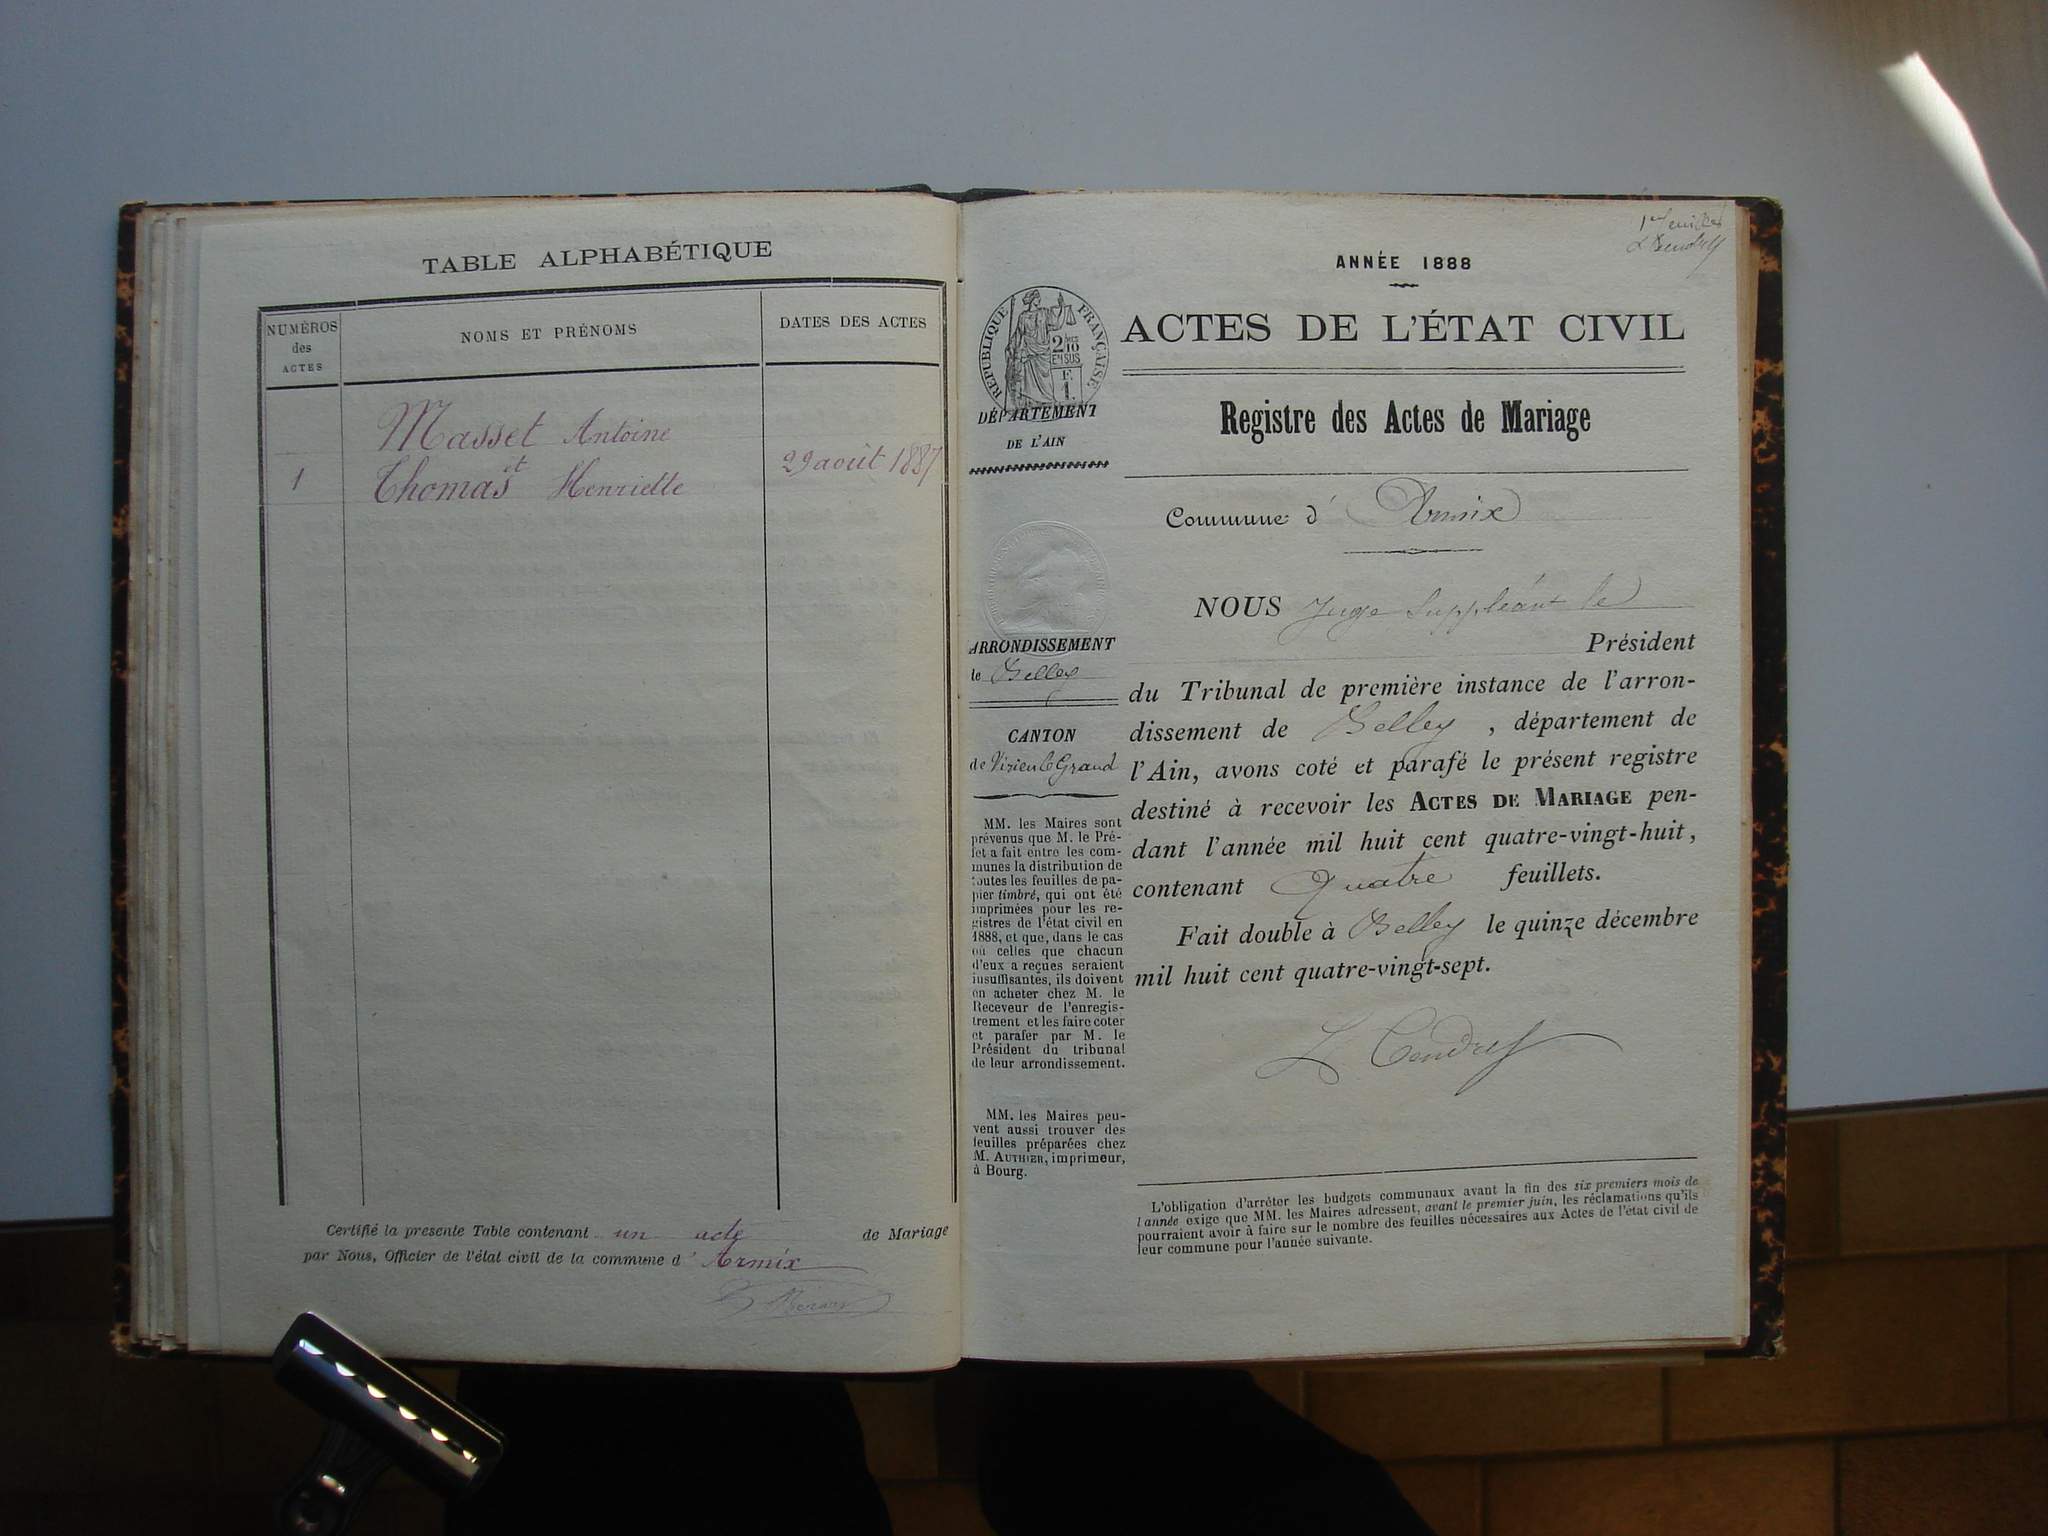 TABLE ALPHABÉTIQUE
NUMÉROS
des
ACTES
NOMS ET PRÉNOMS
DATES DES ACTES
Masset Antoine
et
1
Thomas Henriette
29 août 1887
Certifié la presente Table contenant un acte de Mariage
par Nous, Officier de l'état civil de la commune d' Armix
1er feuillet
ANNÉE 1888
ACTES DE L'ÉTAT CIVIL
RÉPUBLIQUE FRANÇAISE
2 10
EN SUS
F.
1.
DÉPARTEMENT
DE L'AIN
ARRONDISSEMENT
de Belley
CANTON
de Virieu le Grand
MM. les Maires sont
prévenus que M. le Pré-
fet a fait entre les com-
munes la distribution de
toutes les feuilles de pa-
pier timbré, qui ont été
imprimées pour les re-
gistres de l'état civil en
1888, et que, dans le cas
où celles que chacun
d'eux a reçues seraient
insuffisantes, ils doivent
en acheter chez M. le
Receveur de l'enregis-
trement et les faire coter
et parafer par M. le
Président du tribunal
de leur arrondissement.
MM. les Maires peu-
vent aussi trouver des
feuilles préparées chez
M. AUTHIER, imprimeur,
à Bourg.
Registre des Actes de Mariage
Commune d' Armix
NOUS Juge Suppléant le
Président
du Tribunal de première instance de l'arron-
dissement de Belley, département de
l'Ain, avons coté et parafé le présent registre
destiné à recevoir les ACTES DE MARIAGE pen-
dant l'année mil huit cent quatre-vingt-huit,
contenant Quatre feuillets.
Fait double à Belley le quinze décembre
mil huit cent quatre-vingt-sept.
L'obligation d'arrêter les budgets communaux avant la fin des six premiers mois de
l'année exige que MM. les Maires adressent, avant le premier juin, les réclamations qu'ils
pourraient avoir à faire sur le nombre des feuilles nécessaires aux Actes de l'état civil de
leur commune pour l'année suivante.